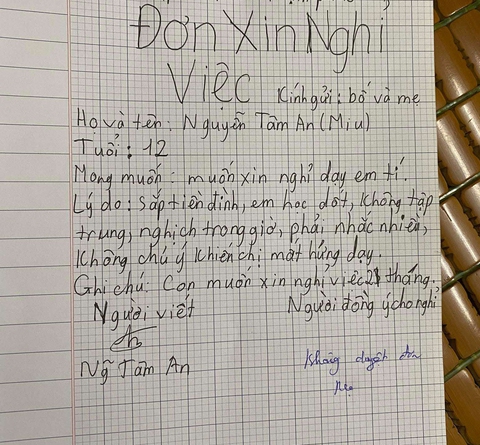 Đơn Xin Nghỉ
Việc Kính gửi: bố và mẹ
Họ và tên: Nguyễn Tâm An (Miu)
Tuổi: 12
Mong muốn: muốn xin nghỉ dạy em tí.
Lý do: sắp tiền đình, em học dốt, không tập
trung, nghịch trong giờ, phải nhắc nhiều,
không chú ý khiến chị mất hứng dạy.
Ghi chú: Con muốn xin nghỉ việc 21 tháng.
Người viết Người đồng ý cho nghỉ
An
Ng̃ Tâm An Không duyệt đơn
Mẹ